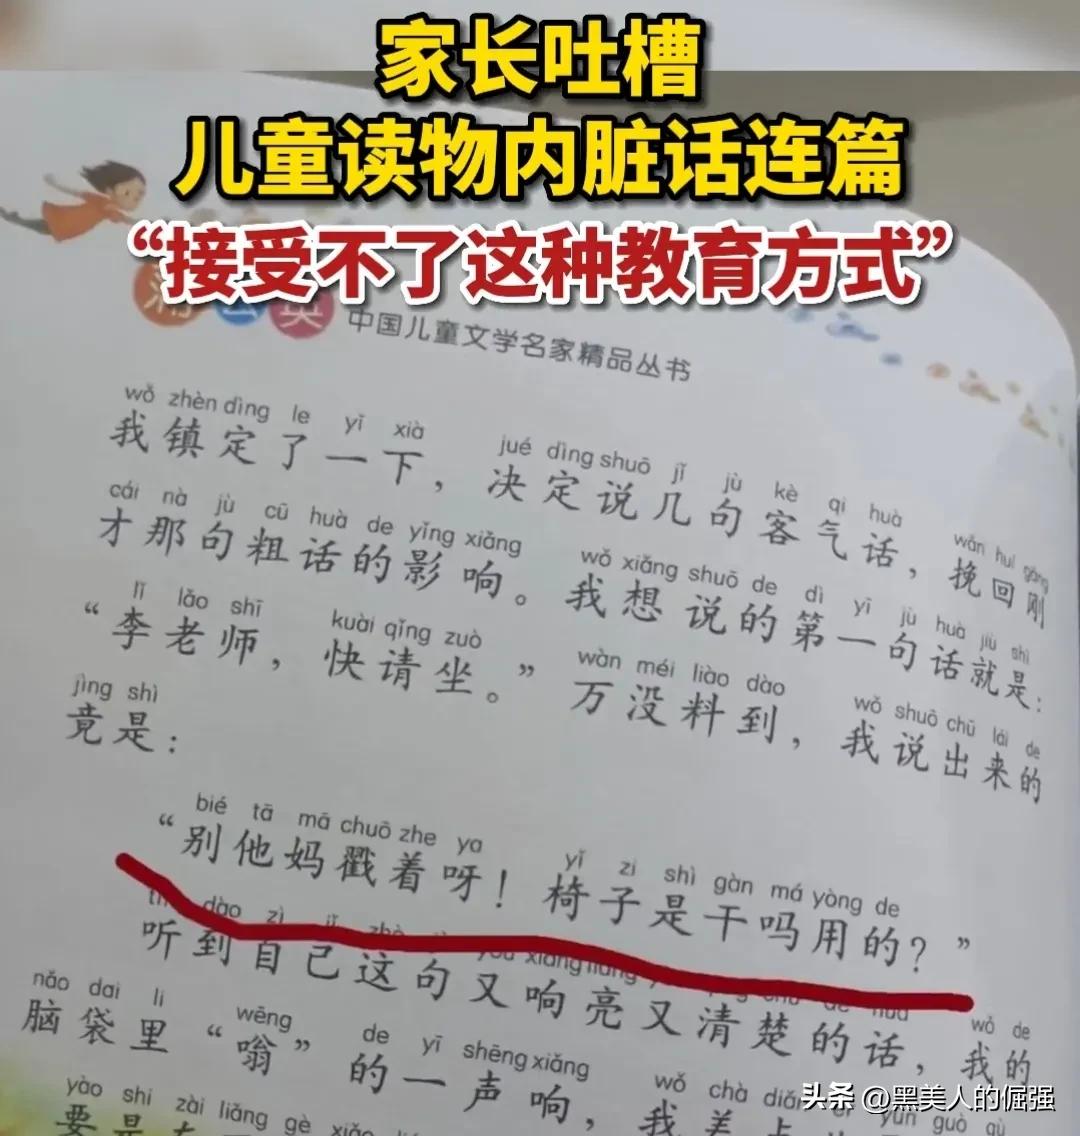 家长吐槽
儿童读物内脏话连篇
“接受不了这种教育方式”
中国儿童文学名家精品丛书
wǒ zhèn dìng le yī xià jué dìng shuō jǐ jù kè qi huà wǎn huí gāng
我镇定了一下，决定说几句客气话，挽回刚
cái nà jù cū huà de yǐng xiǎng wǒ xiǎng shuō de dì yī jù huà jiù shì
才那句粗话的影响。我想说的第一句话就是：
lǐ lǎo shī kuài qǐng zuò wàn méi liào dào wǒ shuō chū lái de
“李老师，快请坐。”万没料到，我说出来的
jìng shì
竟是：
bié tā mā chuō zhe ya yǐ zi shì gàn má yòng de
“别他妈戳着呀！椅子是干吗用的？”
dào zì
听到自己这句又响亮又清楚的话，我的
nǎo dai li wēng de yī shēng xiǎng wǒ chà diǎnr
脑袋里“嗡”的一声响，我差点
yào shi zài liǎng gè
要是
头条 @黑美人的倔强